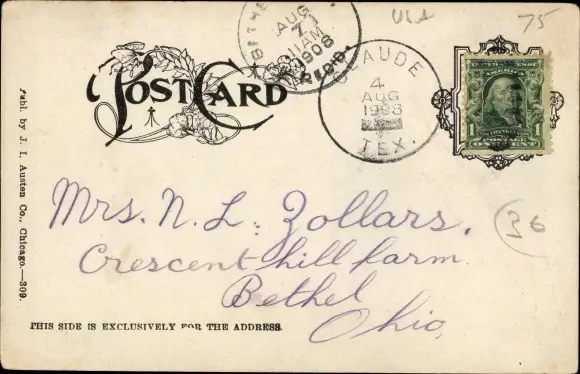 USA
75
BETHE
AUG
7
11AM
1908
REC'D.
POST CARD
CLAUDE
4
AUG
1908
TEX.
UNITED STATES OF
AMERICA
FRANKLIN
1 POSTAGE 1
ONE CENT
Publ. by J. I. Austen Co., Chicago.—309.
Mrs. N. L. Zollars.
36
Crescent hill farm
Bethel
Ohio,
THIS SIDE IS EXCLUSIVELY FOR THE ADDRESS.